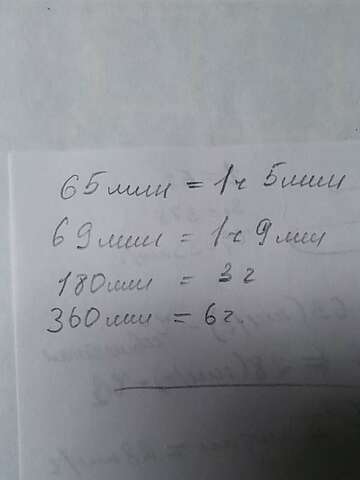 65мин = 1ч 5мин
69мин = 1ч 9мин
180мин = 3ч
360мин = 6ч.